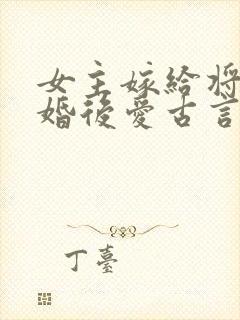 女主嫁給將
婚後愛古言
丁臺